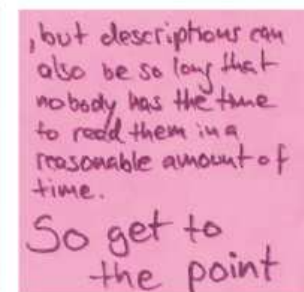 , but descriptions can
also be so long that
nobody has the time
to read them in a
reasonable amount of
time.
So get to
the point